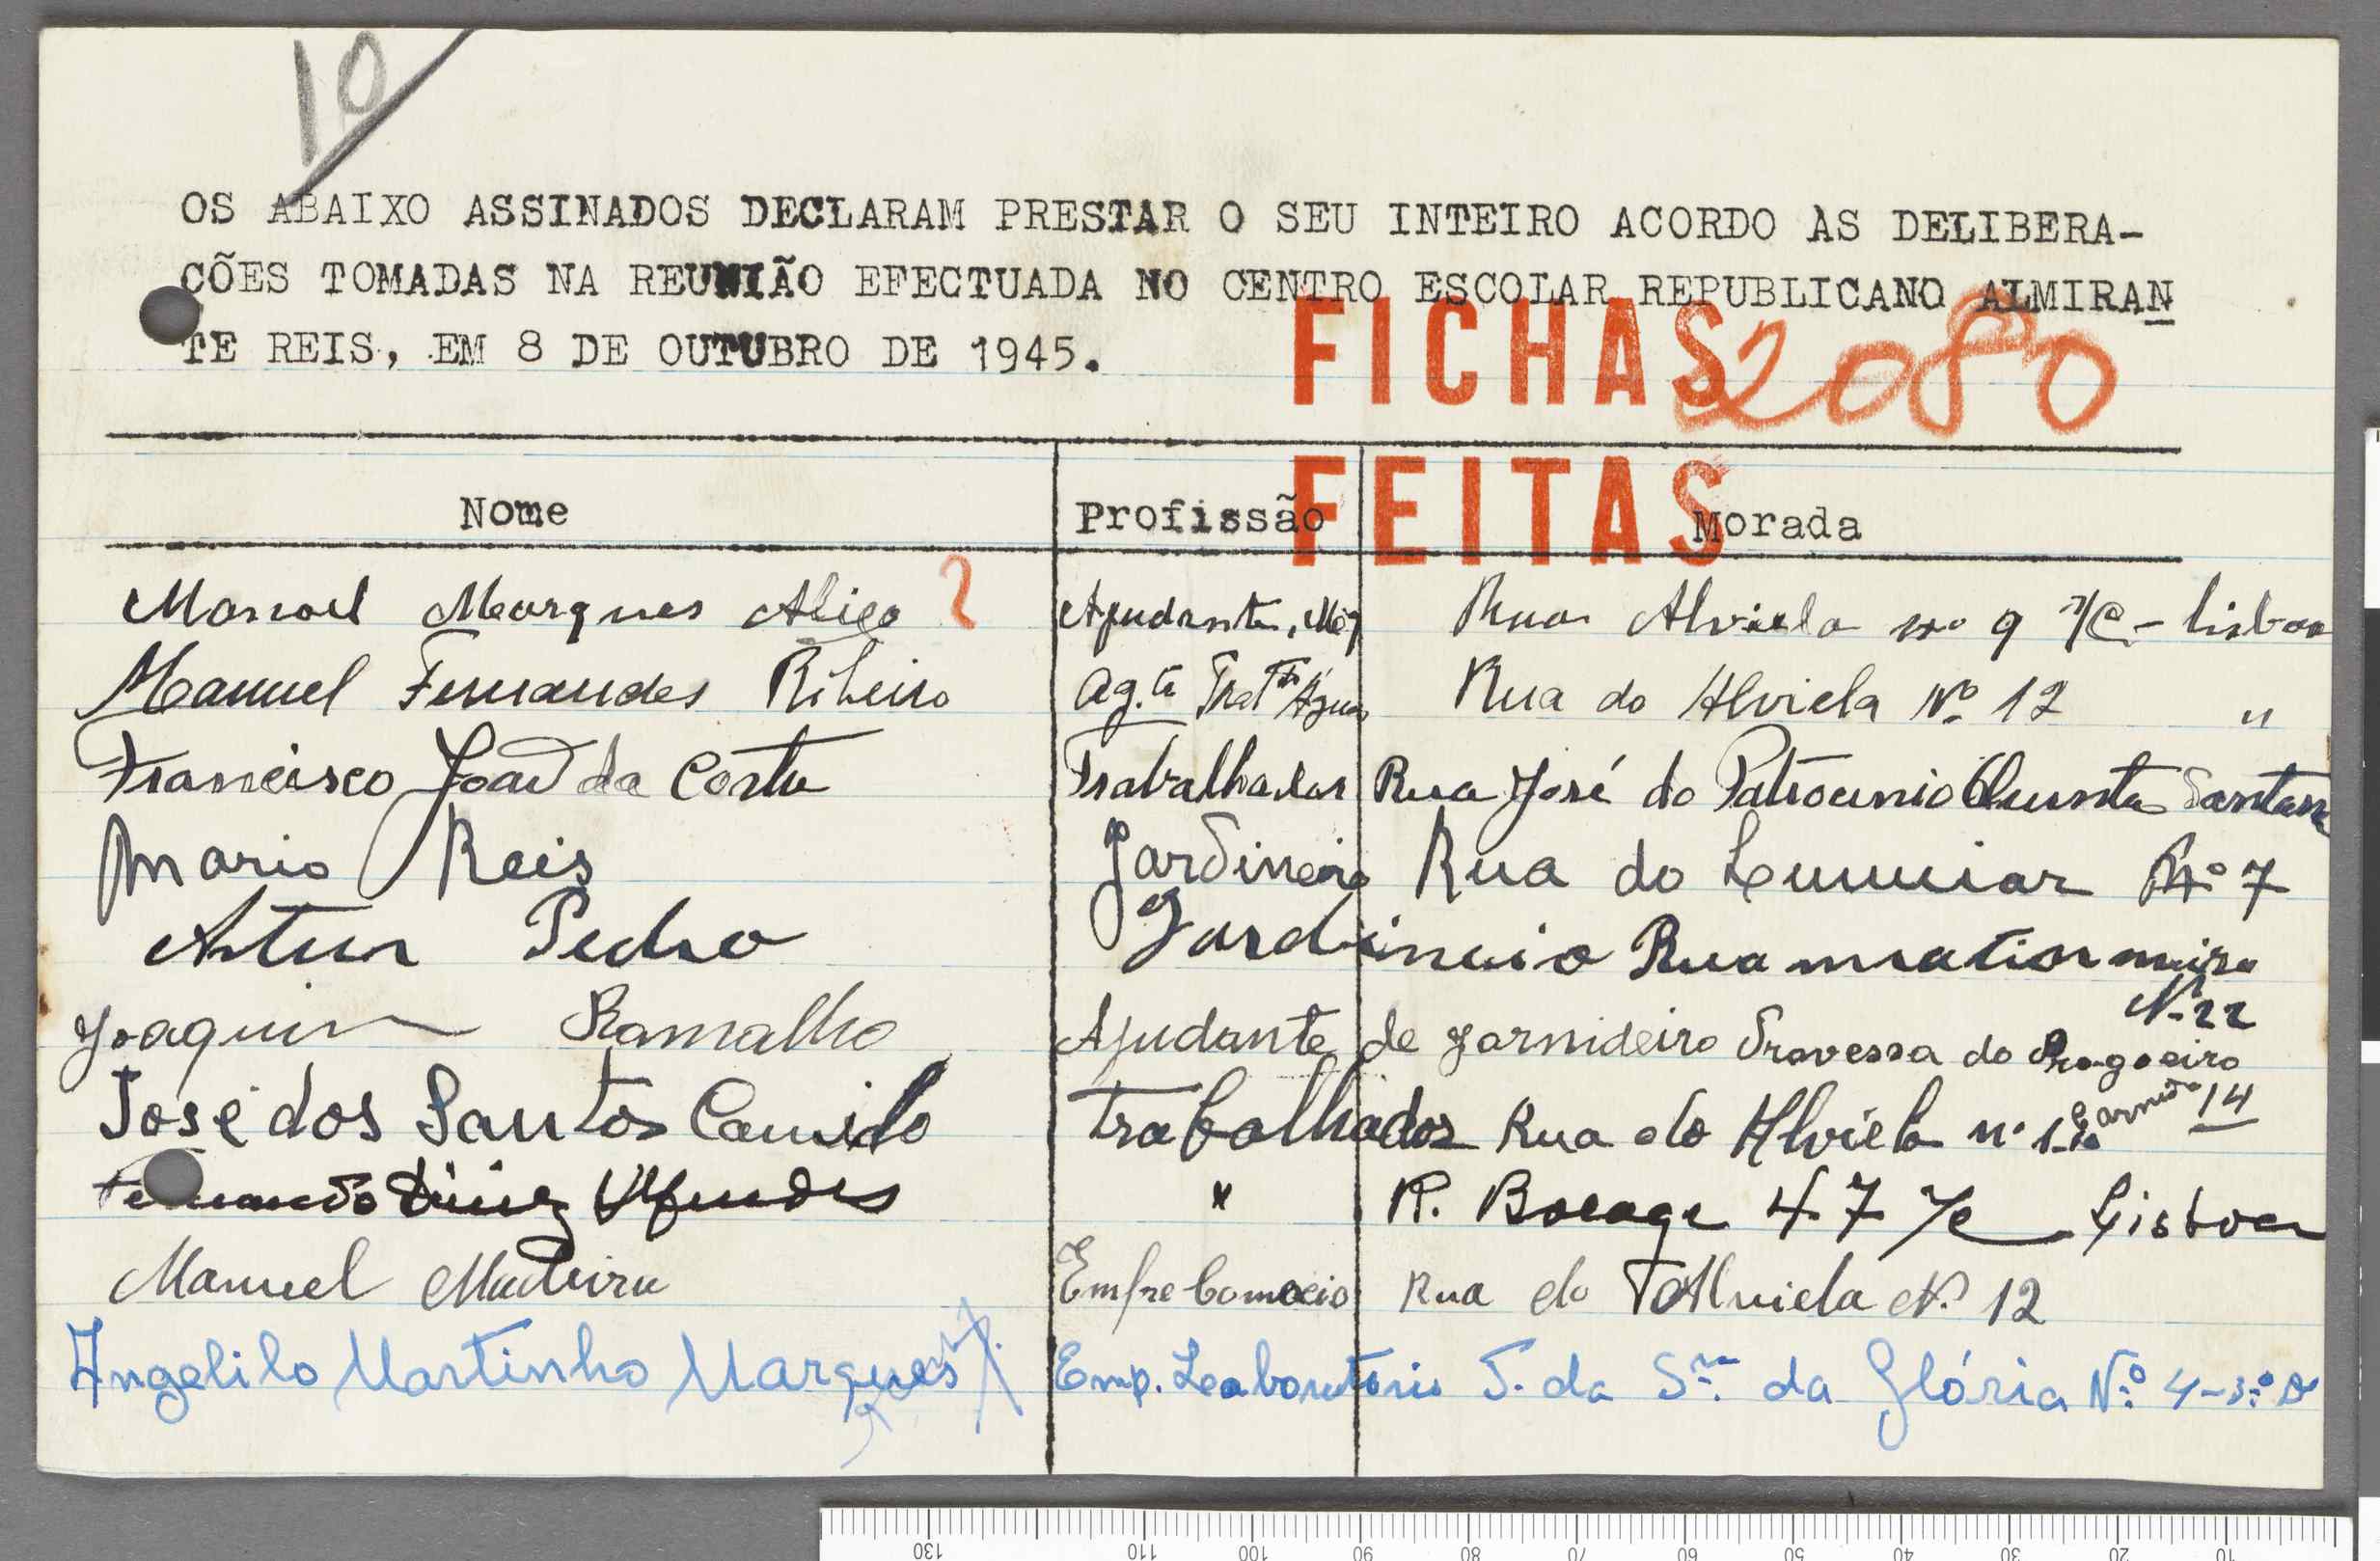 10
OS ABAIXO ASSINADOS DECLARAM PRESTAR O SEU INTEIRO ACORDO AS DELIBERA-
CÕES TOMADAS NA REUNIÃO EFECTUADA NO CENTRO ESCOLAR REPUBLICANO ALMIRAN
TE REIS, EM 8 DE OUTUBRO DE 1945.
FICHAS 2080
FEITAS
Nome Profissão Morada
Manoel Marques Rua Alviela no 9 r/c - Lisboa
Manuel Fernandes Ribeiro Ag.te Trat Rua do Alviela Nº 12 "
Francisco João da Costa Trabalhador Rua José do Patrocinio Quinta Santana
Mario Reis Jardineiro Rua do Lumiar Nº 7
Artur Pedro Jardineiro Rua
Nº 22
Joaquim Ramalho Ajudante de Jarnideiro Travessa do
14
José dos Santos Camilo Trabalhador Rua do Alviela nº
Fernando Mendes " R. Bocage 47 r/c Lisboa
Manuel Madeira Emp Comercio Rua do Alviela Nº 12
Angelilo Martinho Marques Emp. Leaboratorio T. da Srª. da Glória Nº 4-3º D
130 110 100 90 80 70 60 50 40 30 20 10